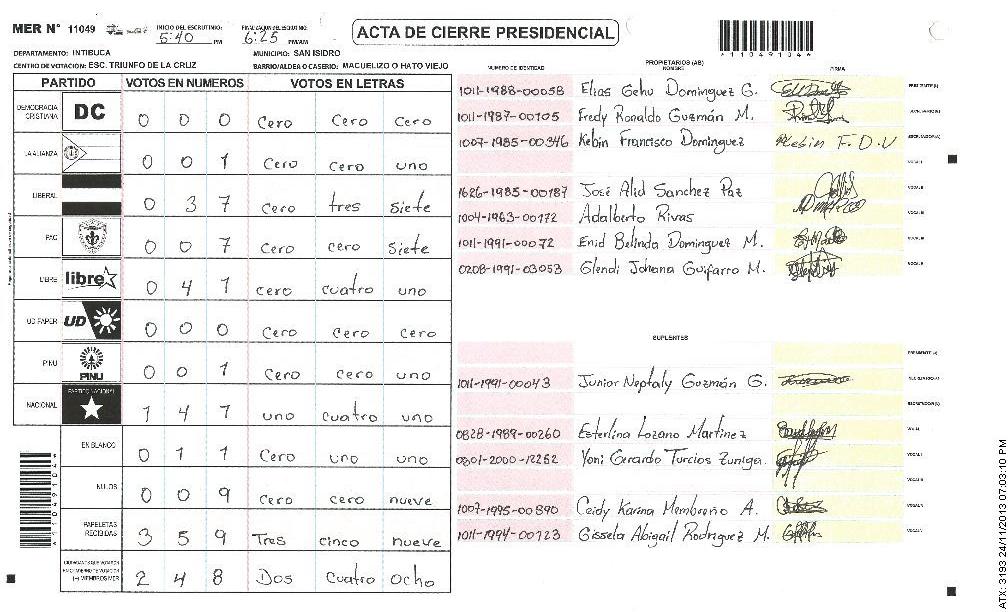 MER N° 11049
INICIO DEL ESCRUTINIO: 5:40 PM
FINALIZACION DEL ESCRUTINIO: 6:25 PM/AM
ACTA DE CIERRE PRESIDENCIAL
*110491046*
DEPARTAMENTO: INTIBUCA
MUNICIPIO: SAN ISIDRO
CENTRO DE VOTACION: ESC. TRIUNFO DE LA CRUZ
BARRIO/ALDEA O CASERIO: MACUELIZO O HATO VIEJO
PARTIDO VOTOS EN NUMEROS VOTOS EN LETRAS
DEMOCRACIA CRISTIANA DC 0 0 0 Cero Cero Cero
LA ALIANZA 0 0 1 Cero Cero uno
LIBERAL 0 3 7 Cero tres siete
PAC 0 0 7 Cero cero siete
LIBRE libre 0 4 1 cero cuatro uno
UD FAPER UD 0 0 0 Cero Cero cero
PINU PINU 0 0 1 Cero cero uno
NACIONAL PARTIDO NACIONAL 1 4 1 uno cuatro uno
EN BLANCO 0 1 1 Cero uno uno
NULOS 0 0 9 Cero cero nueve
PAPELETAS RECIBIDAS 3 5 9 Tres cinco nueve
CIUDADANOS QUE VOTARON (+) MIEMBROS MER 2 4 8 Dos cuatro ocho
PROPIETARIOS (AS)
NUMERO DE IDENTIDAD NOMBRE FIRMA
1011-1988-00058 Elias Gehu Dominguez G. PRESIDENTE(A)
1011-1987-00105 Fredy Ronaldo Guzmán M. SECRETARIO(A)
1007-1985-00346 Kebin Francisco Dominguez Kebin F.D.V ESCRUTADOR(A)
VOCAL I
1626-1985-00187 José Alid Sanchez Paz VOCAL II
1004-1963-00172 Adalberto Rivas VOCAL III
1011-1991-00072 Enid Belinda Dominguez M.
0208-1991-03053 Glendi Johana Guifarro M.
SUPLENTES
PRESIDENTE (A)
1011-1991-00043 Junior Neptaly Guzmán G. SECRETARIO(A)
ESCRUTADOR(A)
0828-1989-00260 Esterlina Lozano Martinez
0801-2000-12252 Yoni Gerardo Turcios Zuniga.
1007-1995-00890 Ceidy Karina Membreño A.
1011-1994-00123 Gissela Abigail Rodriguez M.
ATX: 3193 24/11/2013 07:03:10 PM